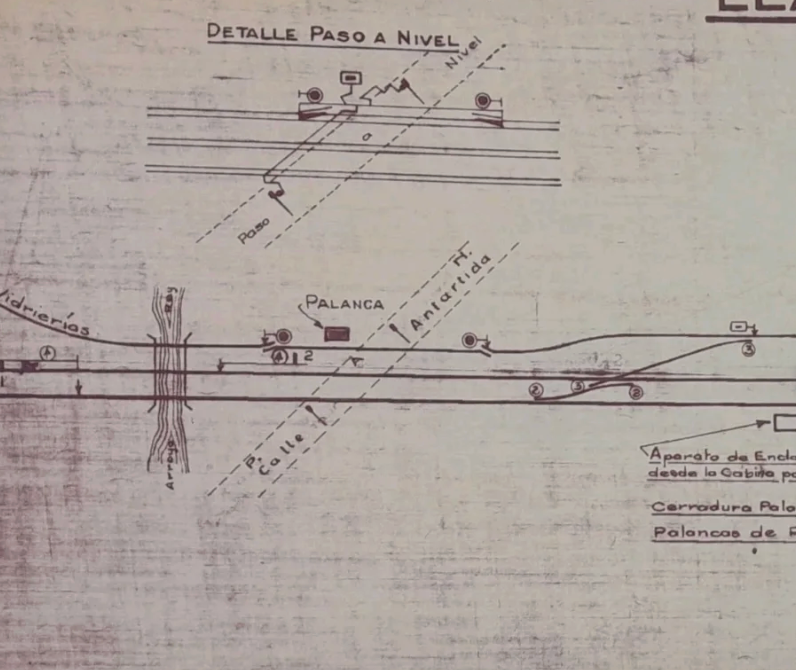 DETALLE PASO A NIVEL
Nivel
a
Paso
idrierías
Rey
PALANCA
N.
Antártida
A
A 1 2
A
3
2 3 2
P.
Calle
Arroyo
Aparato de Encla
desde la Cabiña po
Cerradura Pala
Palancas de